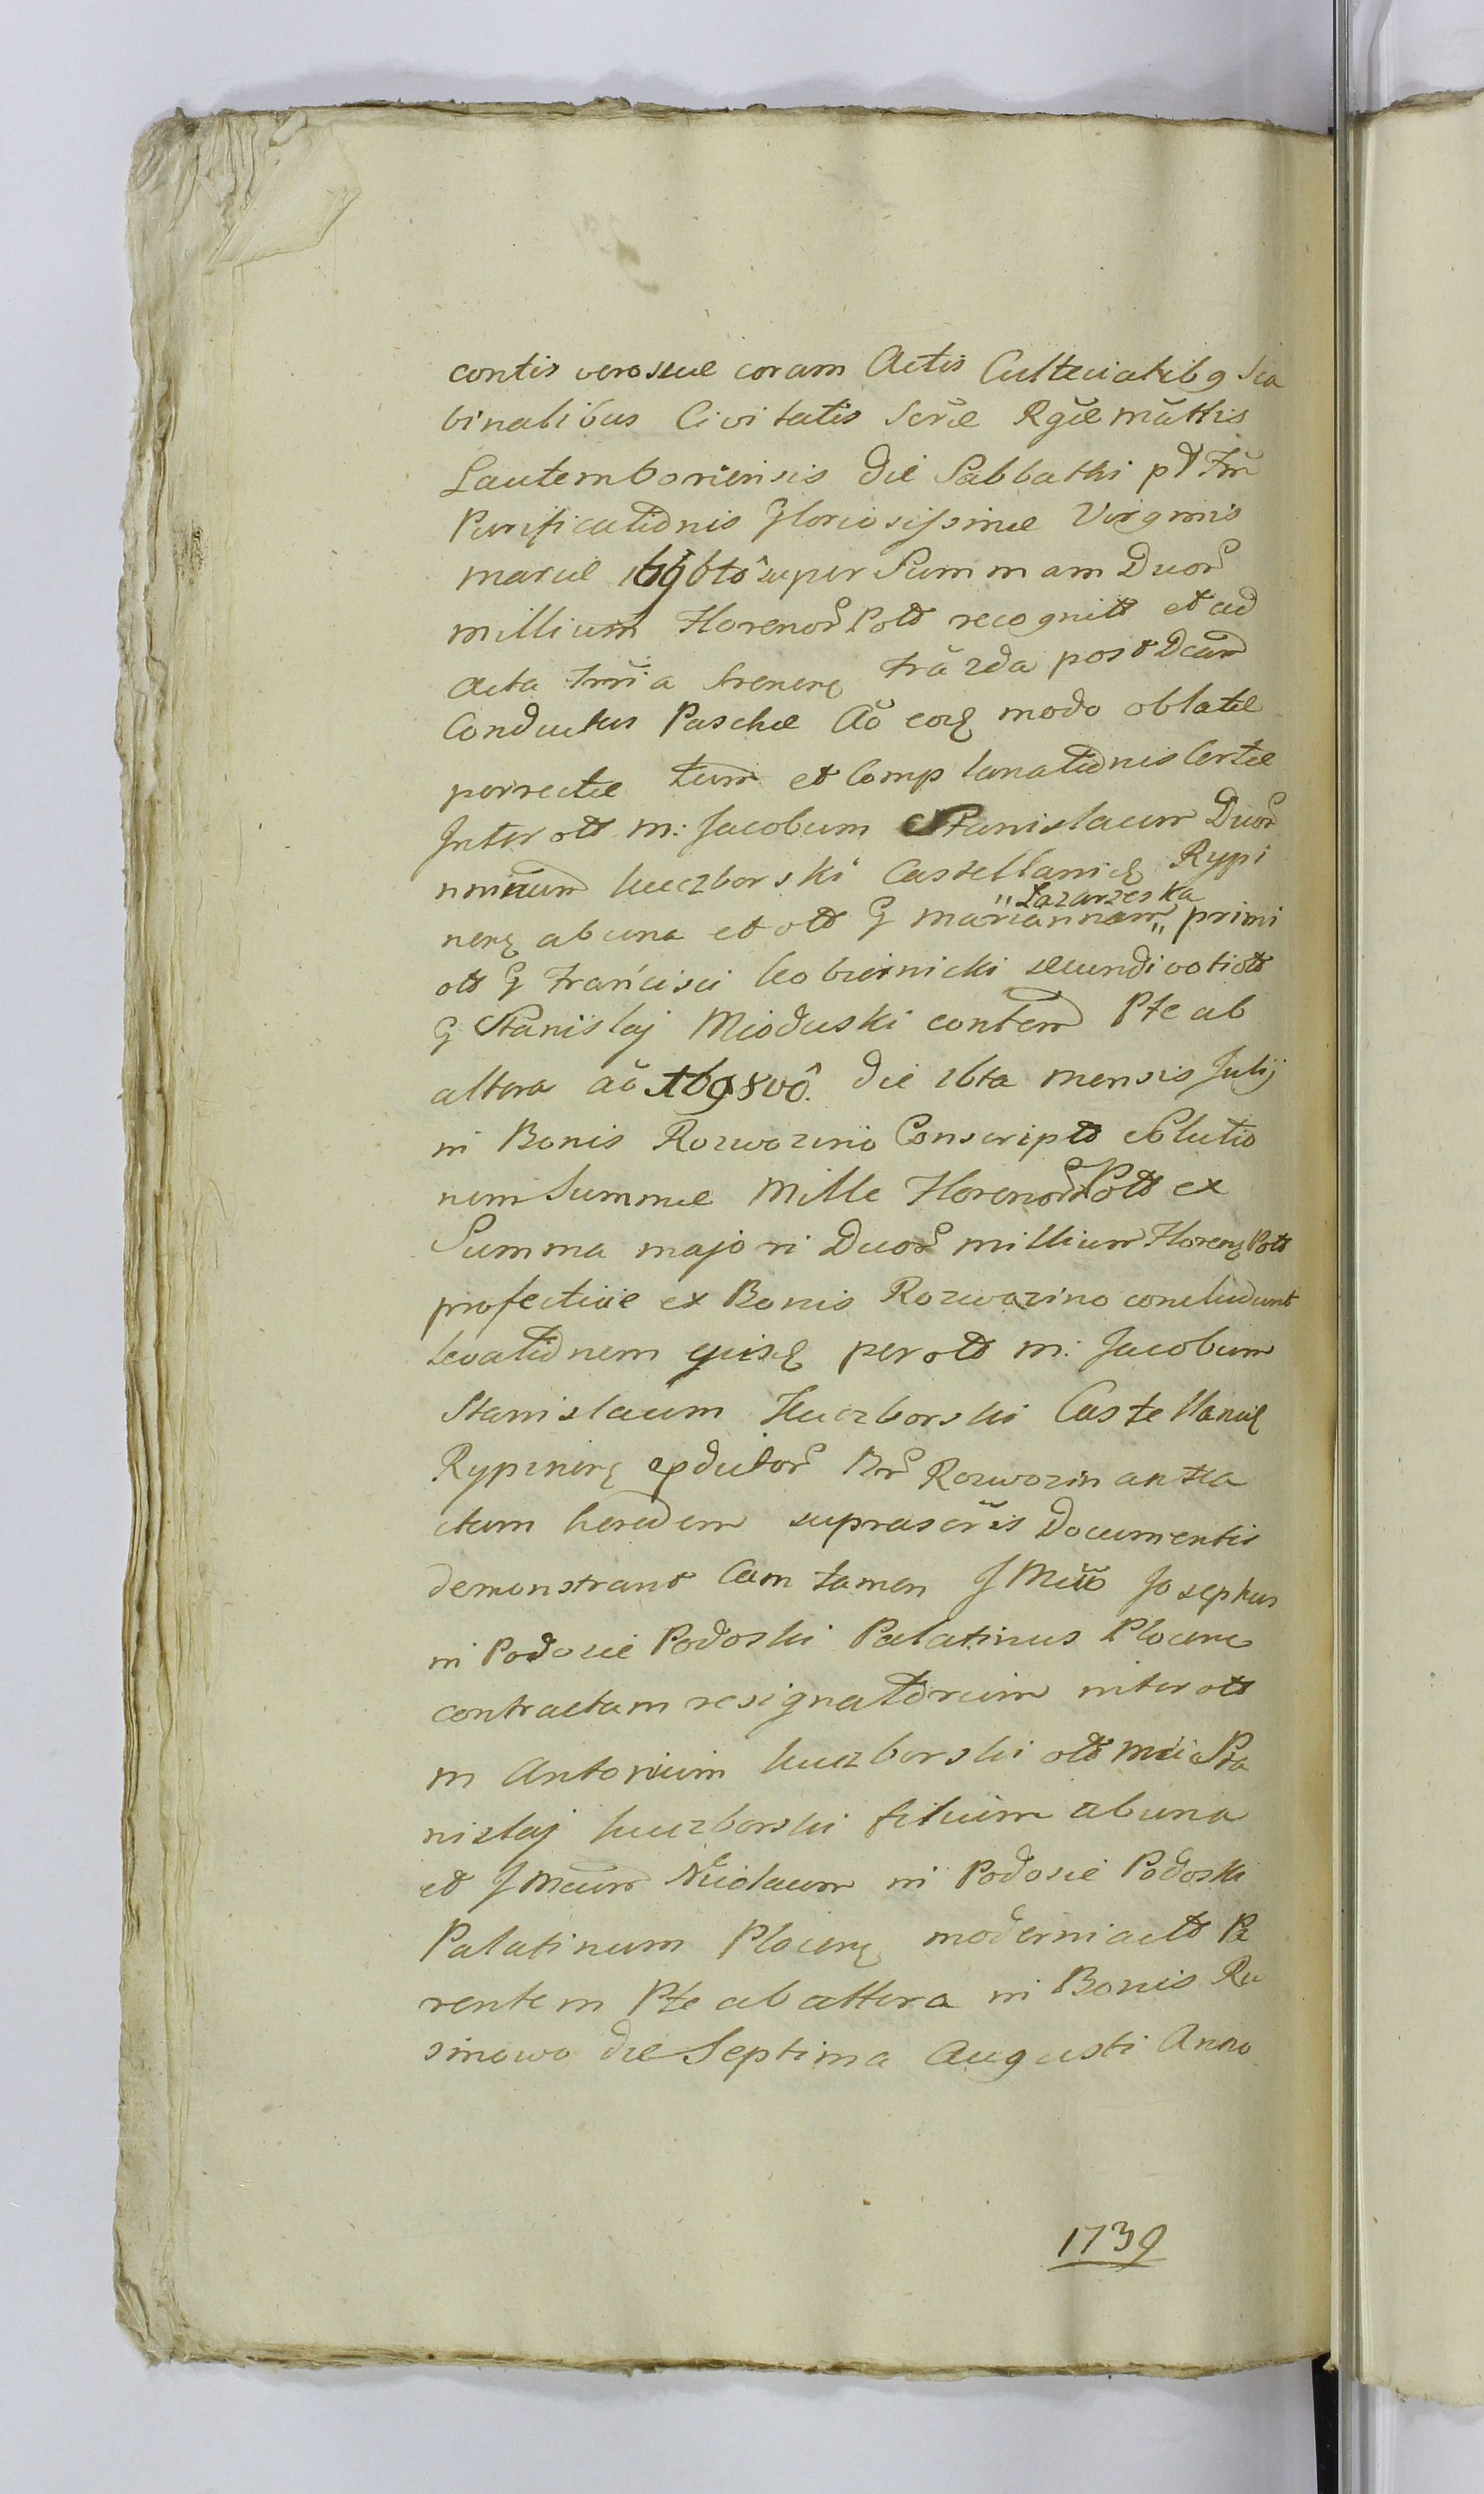 contis verosque coram Actis Cultecialibq Sca
binalibus Civitatis Scrae Rgae mattis
Lautemboriensis die Sabbathi pt Frm
Purificationis Gloriosissimae Virginis
mariae 1696to super Summam Duor
millium Florenor Polt recognitt et ad
Acta Frria Srenens post Dcam
Conductus Paschae Ao eorq modo oblatae
porrectae tum et Complanationis Certae
Inter olt m: Jacobum Stanislaum Duor
nminum kuczborski Castellanicz Rypi
nens ab una et olt G mariannam " Łazarzeska " primi
olt G Francisci kobiernicki secundi voti olt
G Stanislaj Mioduski contem Pte ab
altera ao 1698vo. die 16ta mensis Julij
in Bonis Rozwozino Conscript solutio
nem Summae Mille Florenor Polt ex
Summa majori Duor millium Floren Polt
profectivae ex Bonis Rozwozino concludunt
levationem ejusq per olt m: Jacobum
Stanislaum Kuczborski Castellanicz
Rypinens Br Rozwozin antea
ctum heredem suprascris Documentis
demonstrant Cum tamen J Mius Josephus
in Podosie Podoski Palatinus Plocens
contractum resignatorium inter olt
m Antonium kuczborski olt mci Sta
nislaj kuczborski filium ab una
et J mcum Nicolaum in Podosie Podoski
Palatinum Plocens moderni act Pa
rentem Pte ab altera in Bonis Ru
sinowo die Septima Augusti Anno
1739